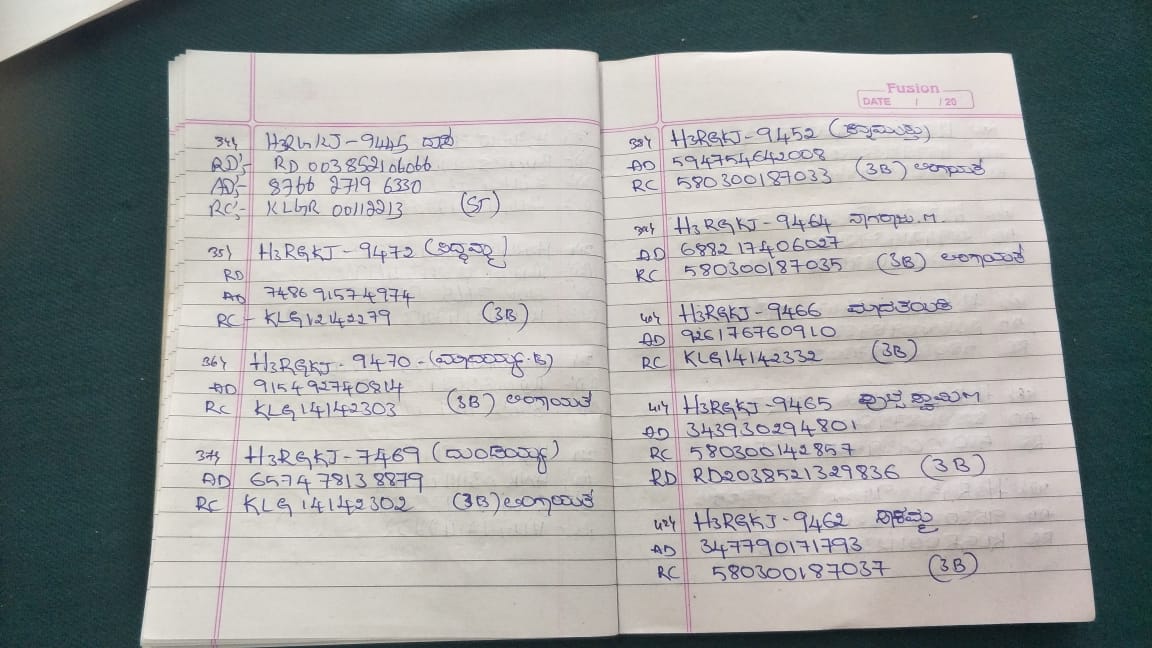 34) H3RGKJ-9445
RD:- RD 003852106066
AD:- 8766 2719 6330
RC:- KLGR 00112213 (ST)
35) H3RGKJ-9472
RD
AD 748691574974
RC- KLG12142279 (3B)
36) H3RGKJ-9470-
AD 915492740814
RC KLG14142303 (3B) ಲಿಂಗಾಯತ
37) H3RGKJ-7469
AD 657478138879
RC KLG14142302 (3B) ಲಿಂಗಾಯತ
Fusion
DATE / /20
38) H3RGKJ-9452
AD 594754642008
RC 580300187033 (3B) ಲಿಂಗಾಯತ
39) H3RGKJ-9464
AD 688217406027
RC 580300187035 (3B) ಲಿಂಗಾಯತ
40) H3RGKJ-9466
AD 926176760910
RC KLG14142332 (3B)
41) H3RGKJ-9465
AD 343930294801
RC 580300142857
RD RD2038521329836 (3B)
42) H3RGKJ-9462
AD 347790171793
RC 580300187037 (3B)